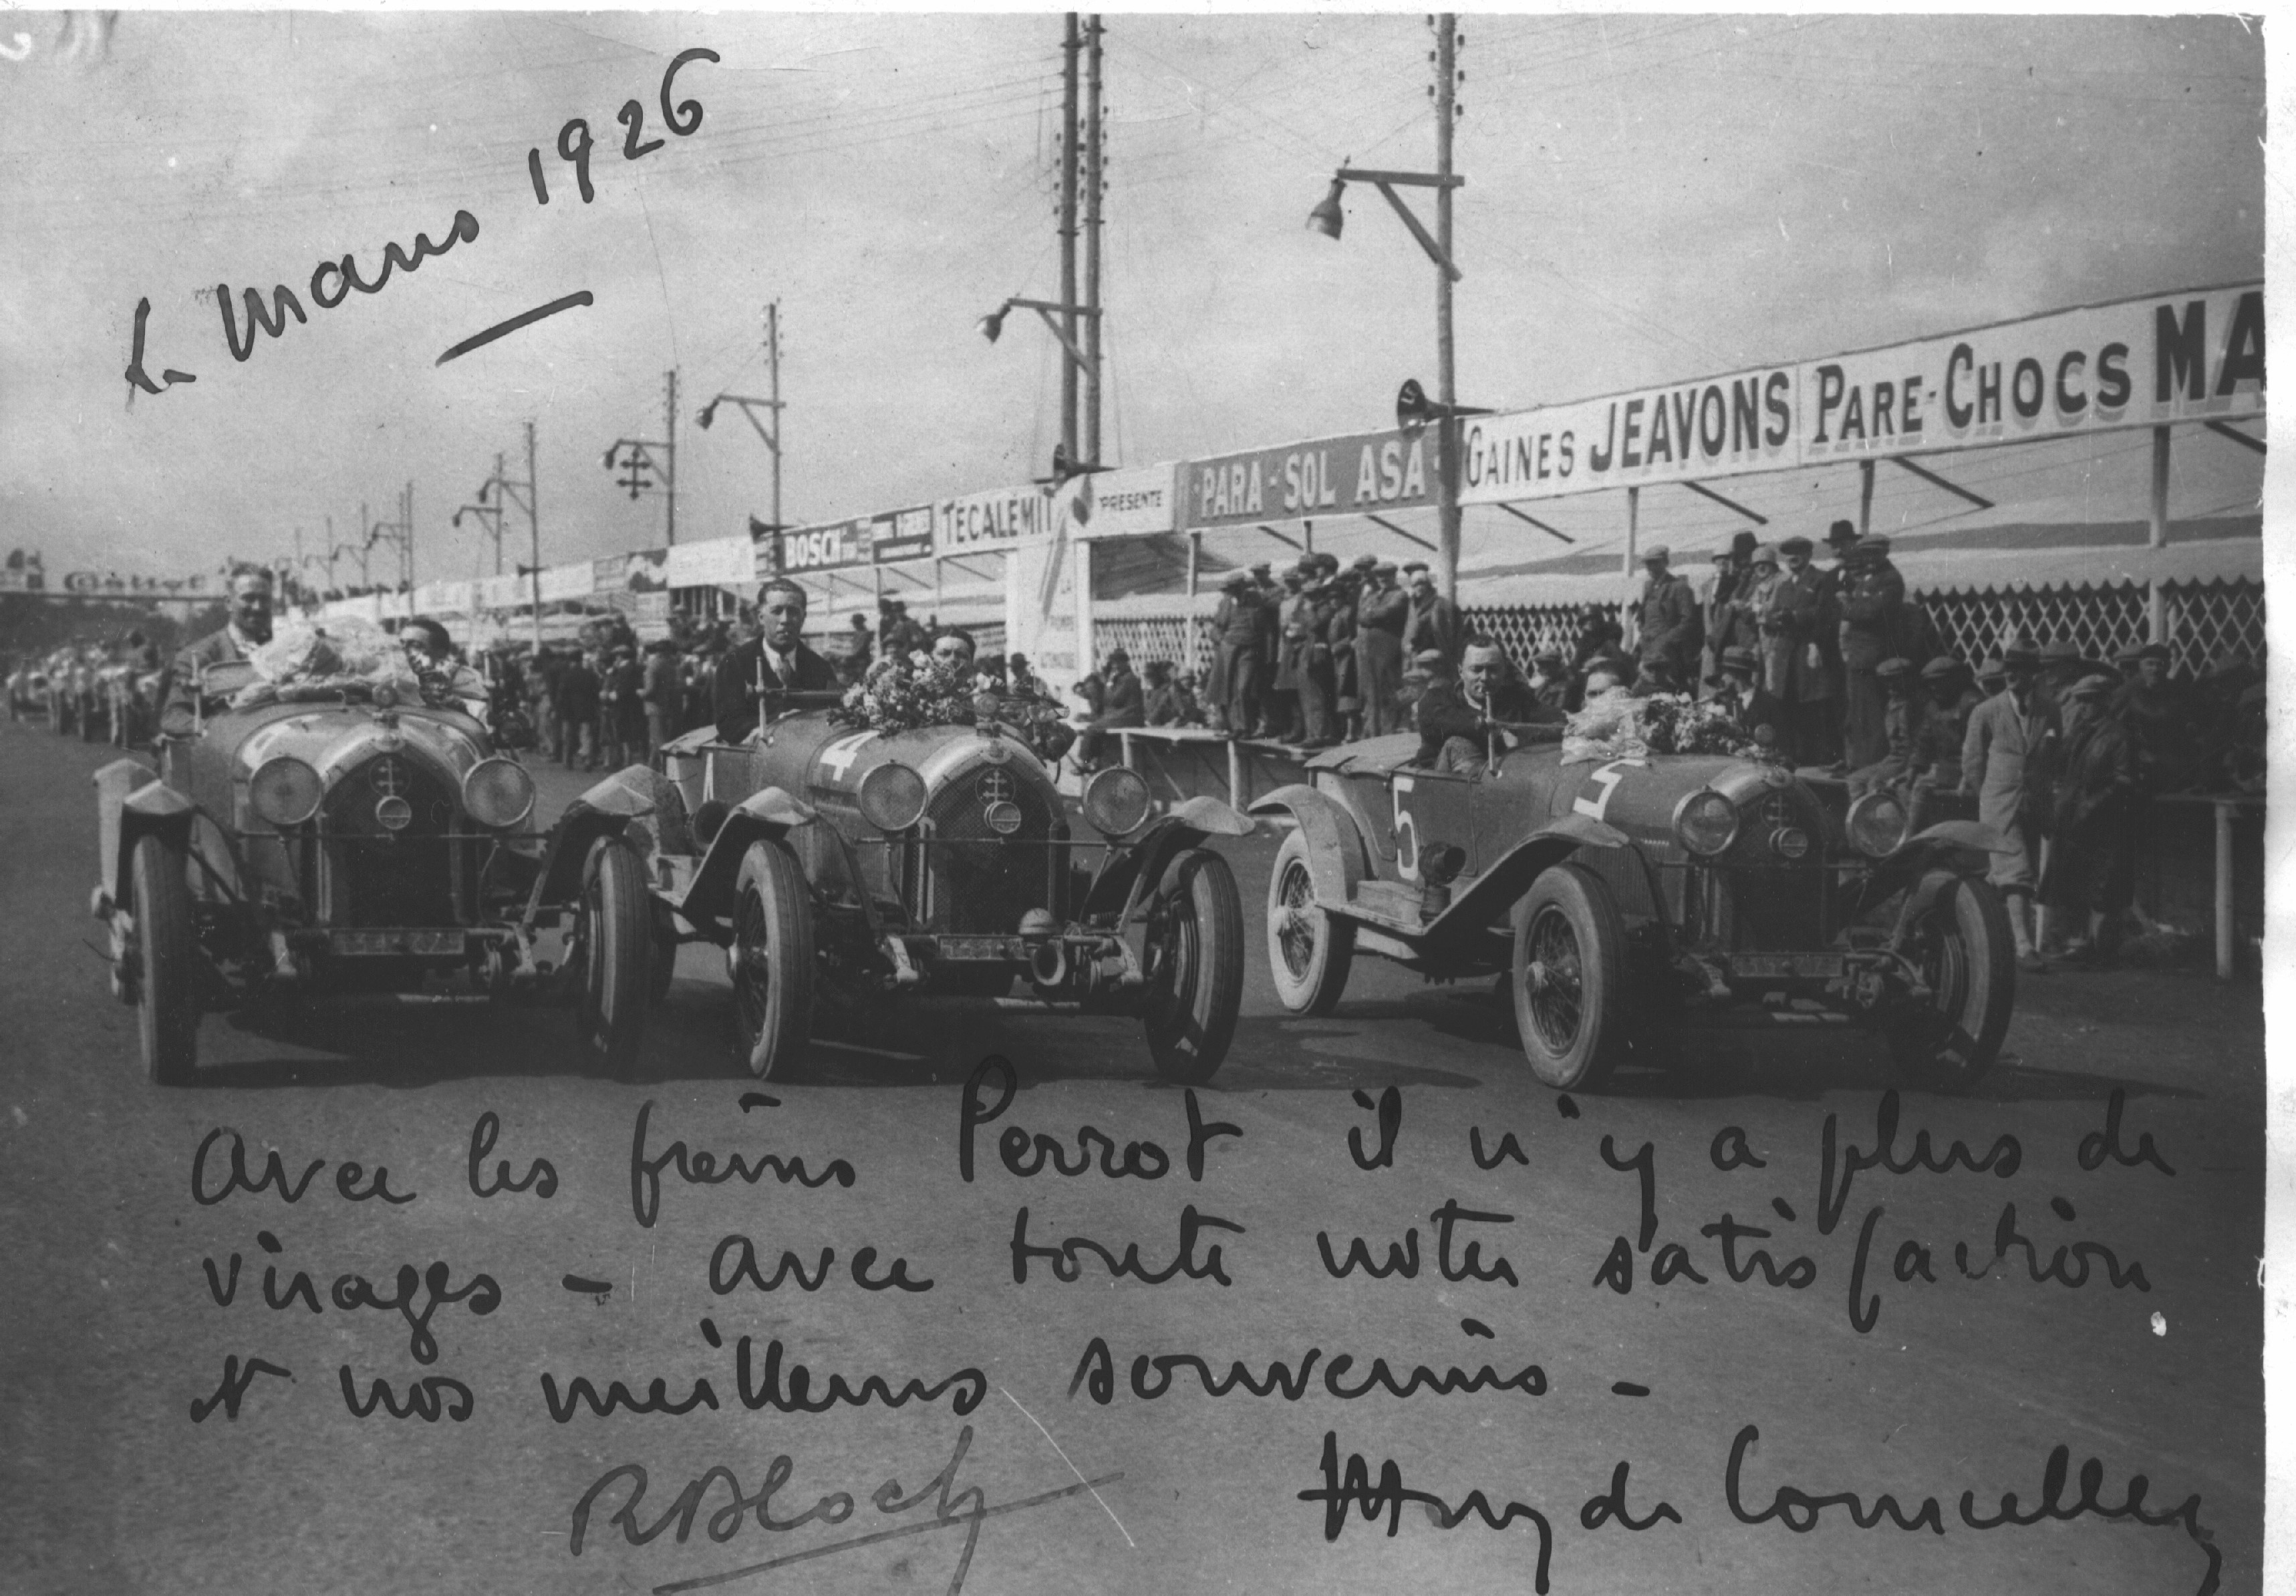 Le Mans 1926
MA
PARE-CHOCS
GAINES JEAVONS
PARA-SOL ASA
PRÉSENTE
TÉCALÉMIT
BOSCH
4
4
5
5
Avec les freins Perrot il n'y a plus de
virages - avec toute notre satisfaction
et nos meilleurs souvenirs -
RBloch
de Courcelles